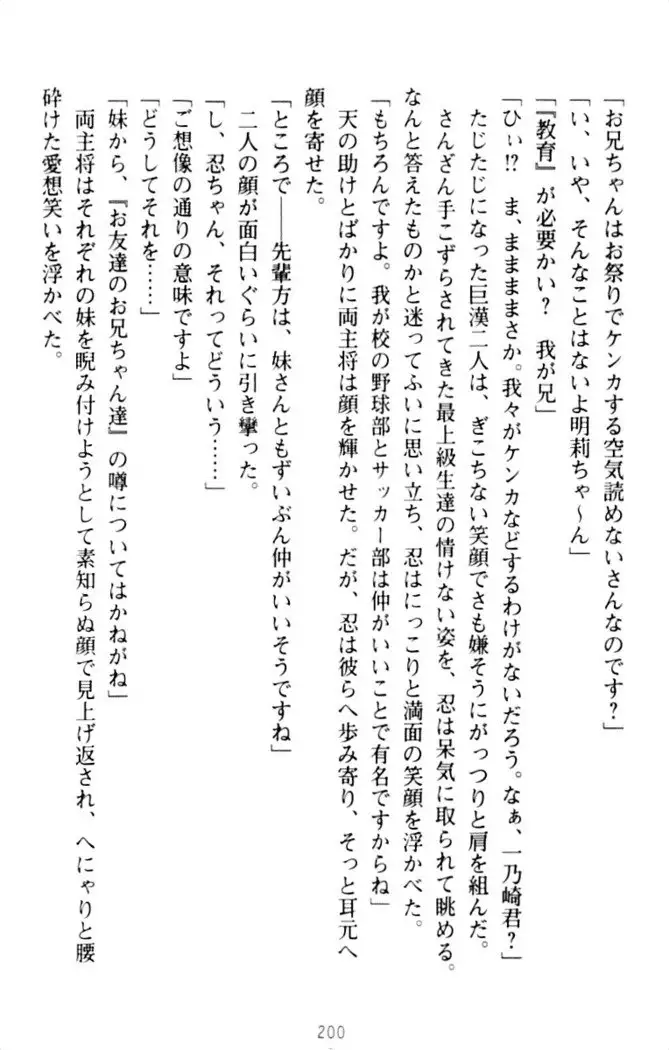 「お兄ちゃんはお祭りでケンカする空気読めないさんなのです?」
「い、いや、そんなことはないよ明莉ちゃ〜ん」
「『教育』が必要かい? 我が兄」
「ひぃ!? ま、まままままさか。我々がケンカなどするわけがないだろう。なぁ、一乃崎君?」
たじたじになった巨漢二人は、ぎこちない笑顔でさも嫌そうにがっつりと肩を組んだ。
さんざん手こずらされてきた最上級生達の情けない姿を、忍は呆気に取られて眺める。
なんと答えたものかと迷ってふいに思い立ち、忍はにっこりと満面の笑顔を浮かべた。
「もちろんですよ。我が校の野球部とサッカー部は仲がいいことで有名ですからね」
天の助けとばかりに両主将は顔を輝かせた。だが、忍は彼らへ歩み寄り、そっと耳元へ
顔を寄せた。
「ところで――先輩方は、妹さんともずいぶん仲がいいそうですね」
二人の顔が面白いぐらいに引き攣った。
「し、忍ちゃん、それってどういう……」
「ご想像の通りの意味ですよ」
「どうしてそれを……」
「妹から、『お友達のお兄ちゃん達』の噂についてはかねがね」
両主将はそれぞれの妹を睨み付けようとして素知らぬ顔で見上げ返され、へにゃりと腰
砕けた愛想笑いを浮かべた。
200